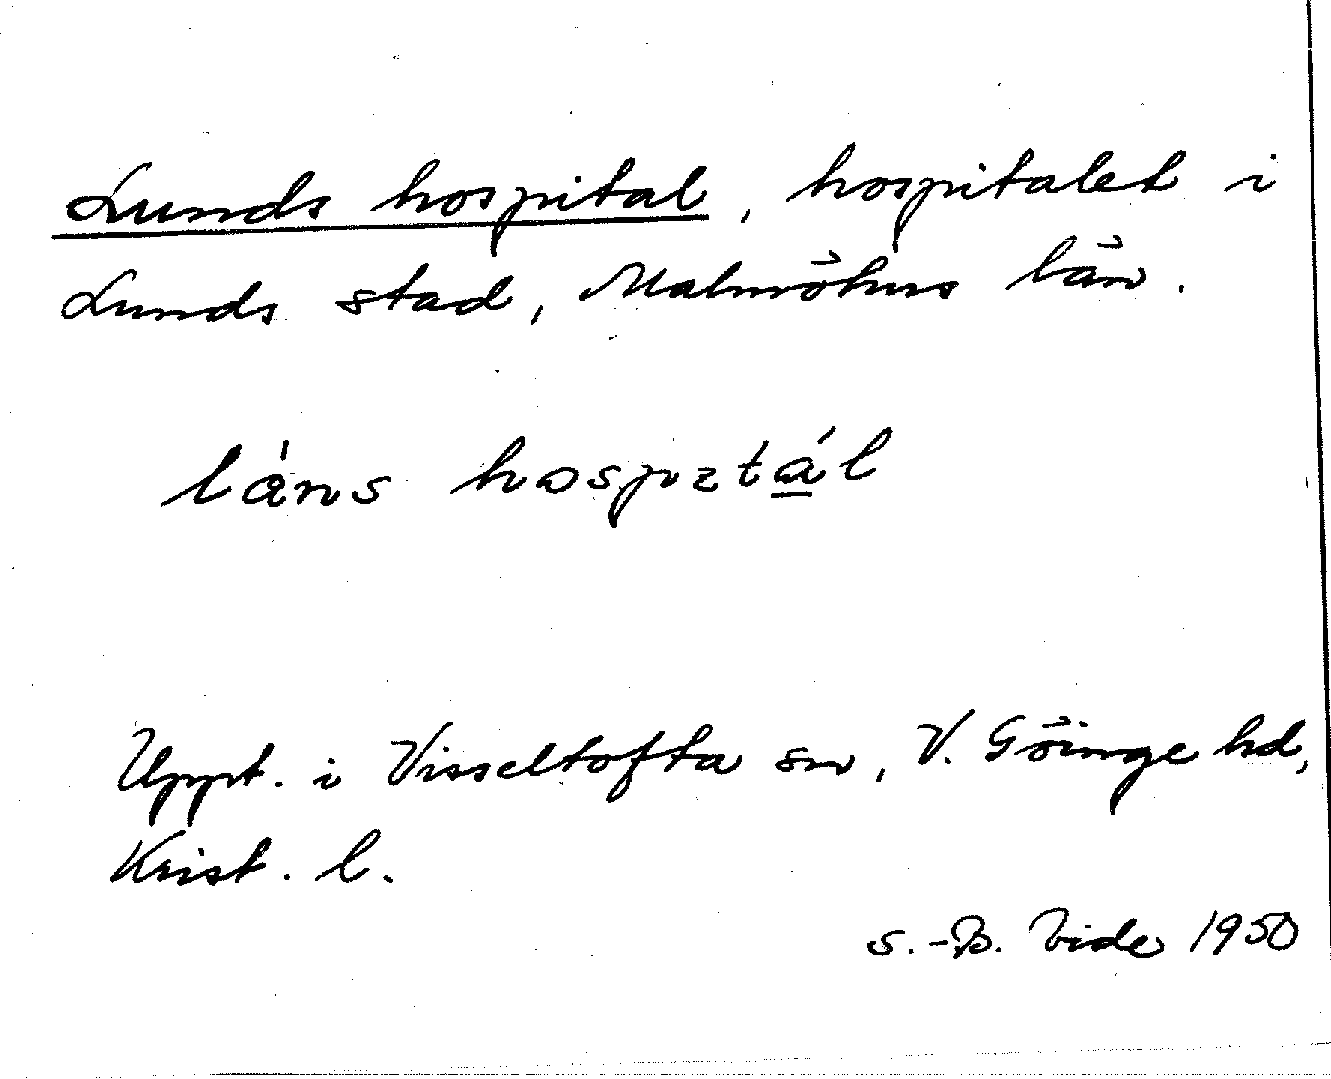 Lunds hospital, hospitalet i
Lunds stad, Malmöhus län.
làns hospɪtál
Uppt. i Visseltofta sn, V. Göinge hd,
Krist. l.
S.-B. Vide 1950